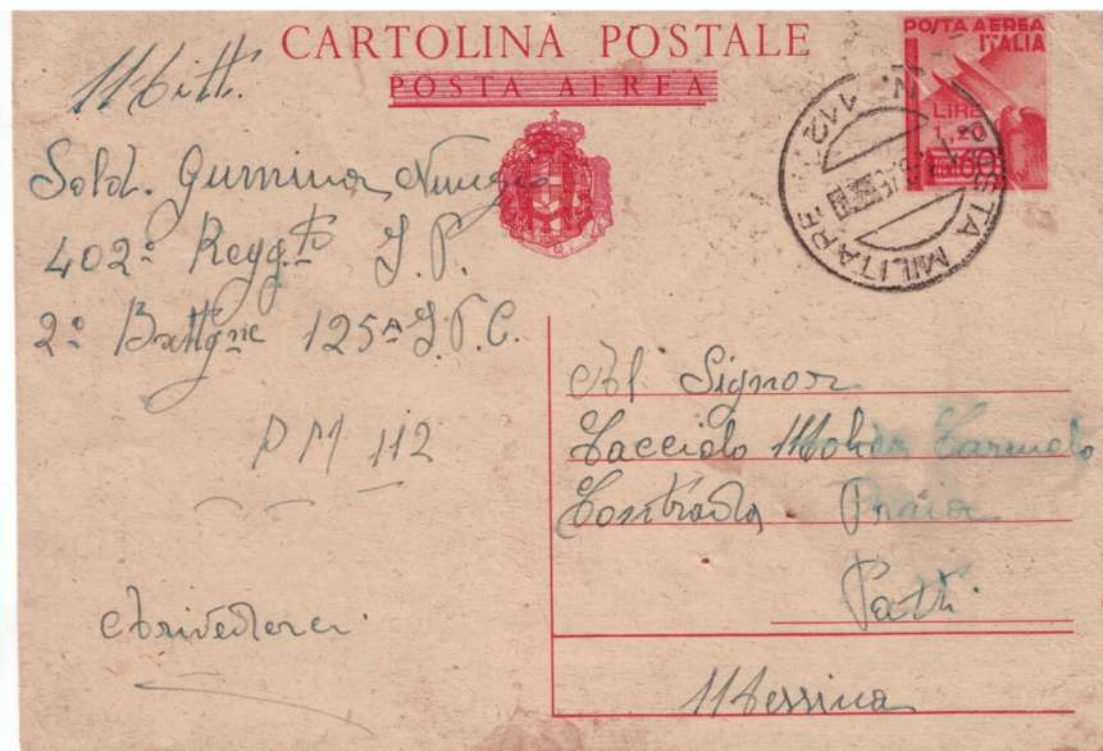 CARTOLINA POSTALE
POSTA AEREA
POSTA AEREA
ITALIA
LIRE
1,20
POSTA MILITARE N. 112
Mitt.
Sold. Gumina Nunzio
402º Regg.to J. P.
2º Battgne 125ª J. P. C.
PM 112
Arivederci
Al Signor
Cacciolo Carmelo
Contrada Praia
Patti
Messina